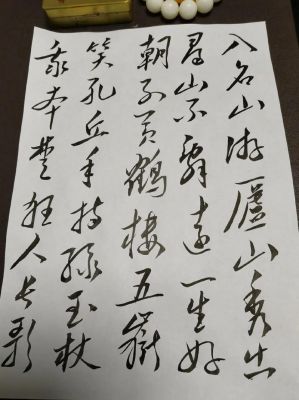 我本楚狂人长歌
笑孔丘手持绿玉杖
朝别黄鶴樓五嶽
尋山不辭遠一生好
入名山游廬山秀出